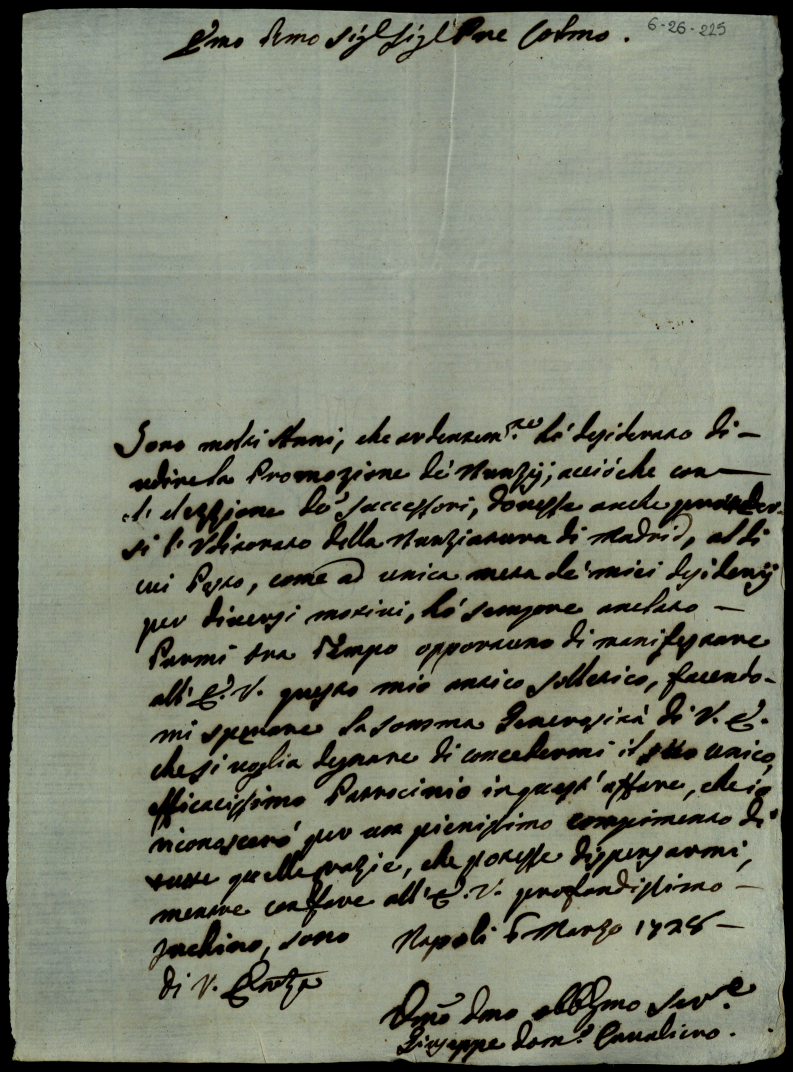 6-26-225
Emo Rmo Sigr Sigr Pne Colmo.
Sono molti Anni, che ardentemte hò desiderato di
udire la Promozione de' Nunzij, acciòche con
l' elezzione de' Successori, dovesse anche proveder-
si l' Uditorato della Nunziatura di Madrid, al di
cui Posto, come ad unica meta de' miei desiderij
per diversi motivi, hò sempre anelato
Parmi ora tempo opportuno di manifestare
all' E. V. questo mio antico solletico, facendo-
mi sperare la somma Generosità di V. E.
che si voglia degnare di concedermi il suo unico,
efficacissimo Patrocinio in quest' affare, che io
riconoscerò per un pienissimo compimento di
tutte quelle grazie, che potesse dispensarmi,
mentre con fare all' E. V. profondissimo
inchino, sono Napoli 6 Marzo 1728
di V. Emza
Dmo Dmo obbligmo Serre
Giuseppe Domo Cavaliero.